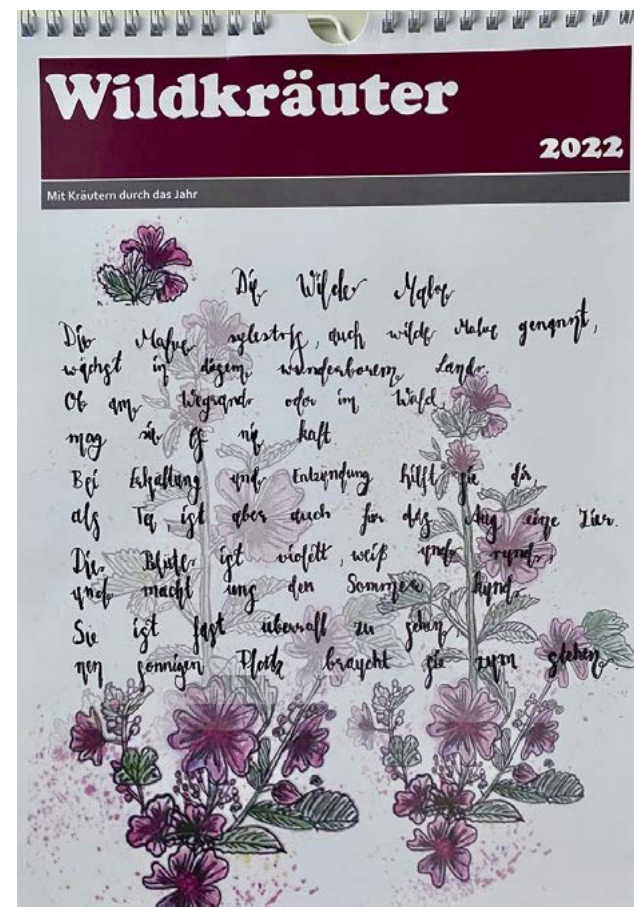 Wildkräuter
2022
Mit Kräutern durch das Jahr
Die Wilde Malve
Die Malve sylestris, auch wilde Malve genannt,
wächst in disem wunderbarem Lande.
Ob am Wegrande oder im Wald,
mag sie es nie kalt.
Bei Erkältung und Entzündung hilft sie dir,
als Te, ist aber auch für das Aug eine Zier.
Die Blüte ist violett, weiß und rund,
und macht uns den Sommer kund.
Sie ist fast überall zu sehen,
nen sonnigen Platz braucht sie zum stehen.